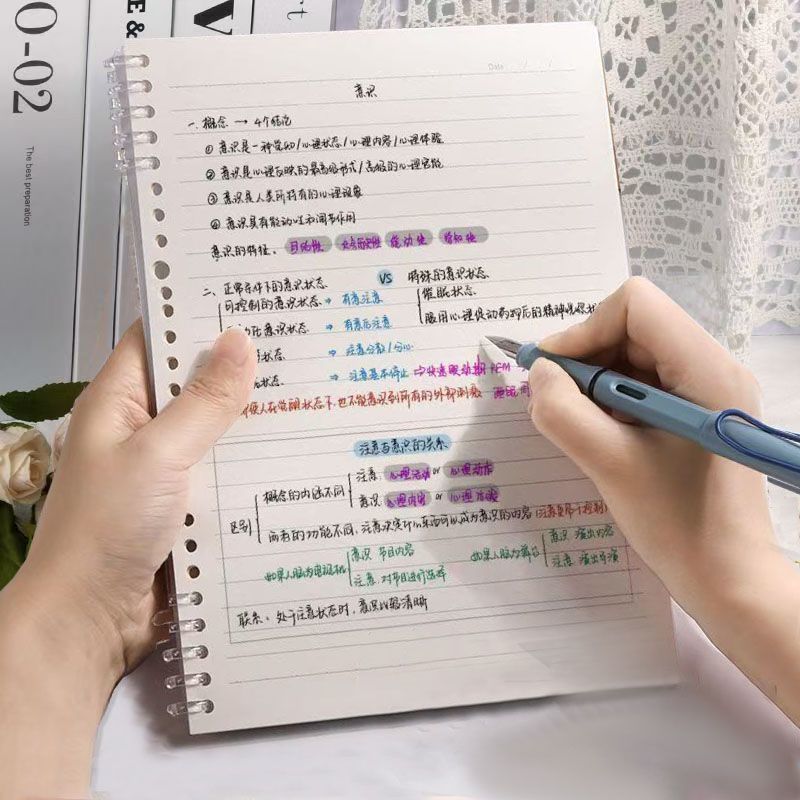 0-02
The best preparation
E &
V
art
Date: / /
意识
一、概念 → 4个结论
① 意识是一种觉知/心理状态/心理内容/心理体验
② 意识是心理反映的最高级形式/高级的心理官能
③ 意识是人类所特有的心理现象
④ 意识具有能动性和调节作用
意识的特征。自觉性 能动性
二、正常条件下的意识状态 VS 特殊的意识状态
可控制的意识状态 ⇒ 有意注意 催眠状态
意识状态 ⇒ 有意后注意 服用心理促动药物后的精神恍惚状
状态 ⇒ 注意分散/分心
状态 ⇒ 注意基本停止 ⇒ 快速眼动期 REM
使人在觉醒状态下,也不能意识到所有的外部刺激
注意与意识的关系
区别 概念的内涵不同 注意:心理活动 or 心理动作
意识:心理内容 or 心理体验
两者的功能不同,注意决定什么东西可以成为意识的内容
如果人脑为电视机 意识 节目内容 如果人脑为舞台 意识 演出内容
注意:对节目进行选择 注意 演出导演
联系:处于注意状态时,意识比较清晰